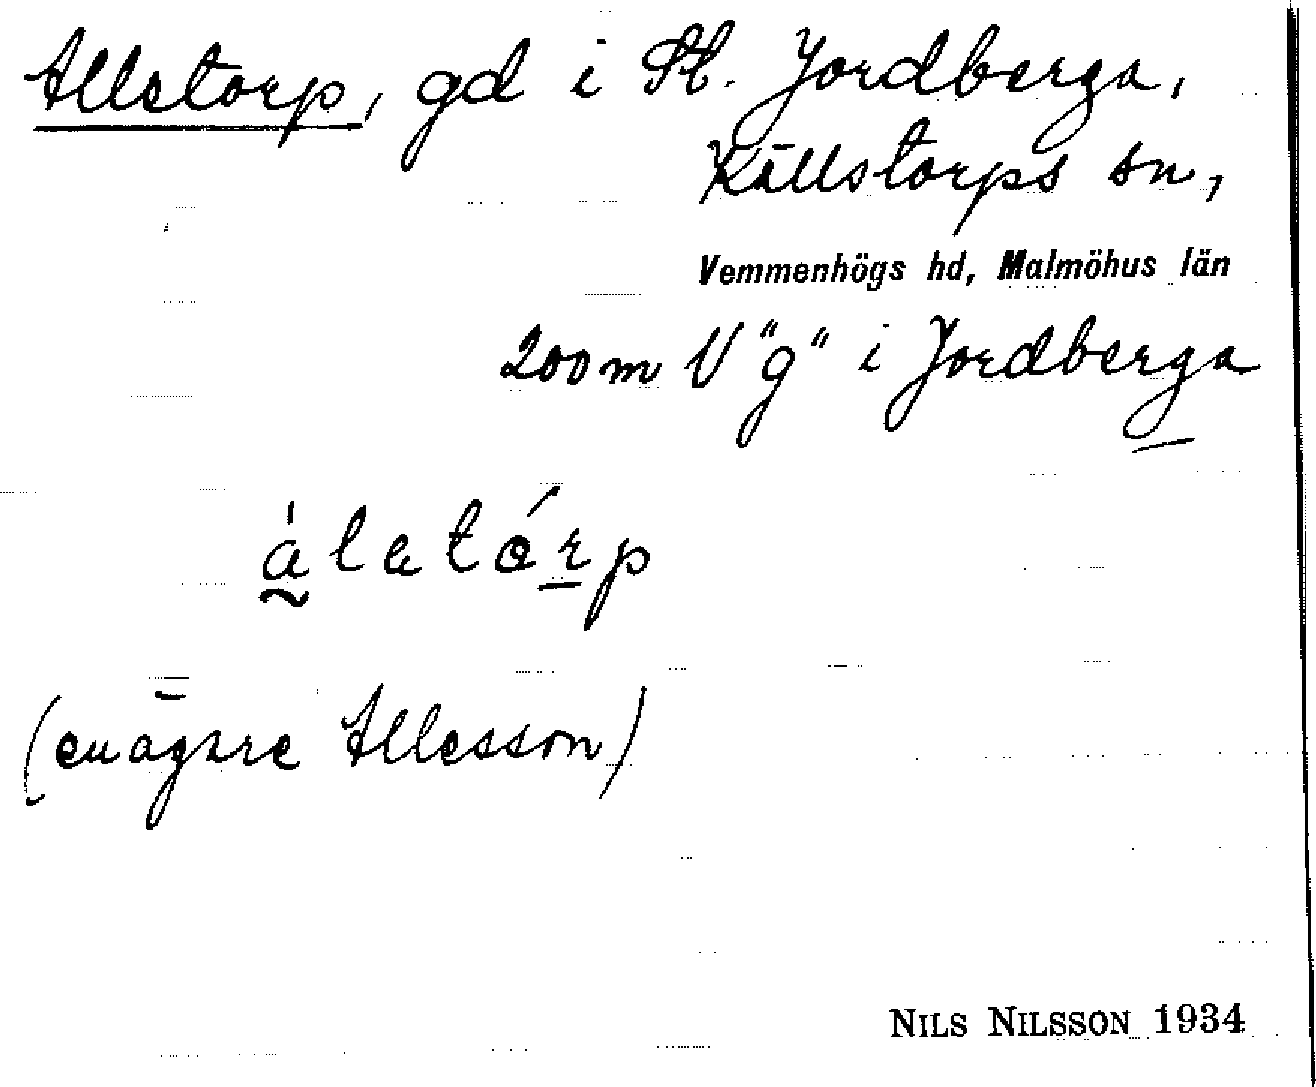 Allstorp, gd i St. Jordberga,
Källstorps sn,
Vemmenhögs hd, Malmöhus län
200 m V "g" i Jordberga
álatórp
(en ägare Allesson)
NILS NILSSON 1934